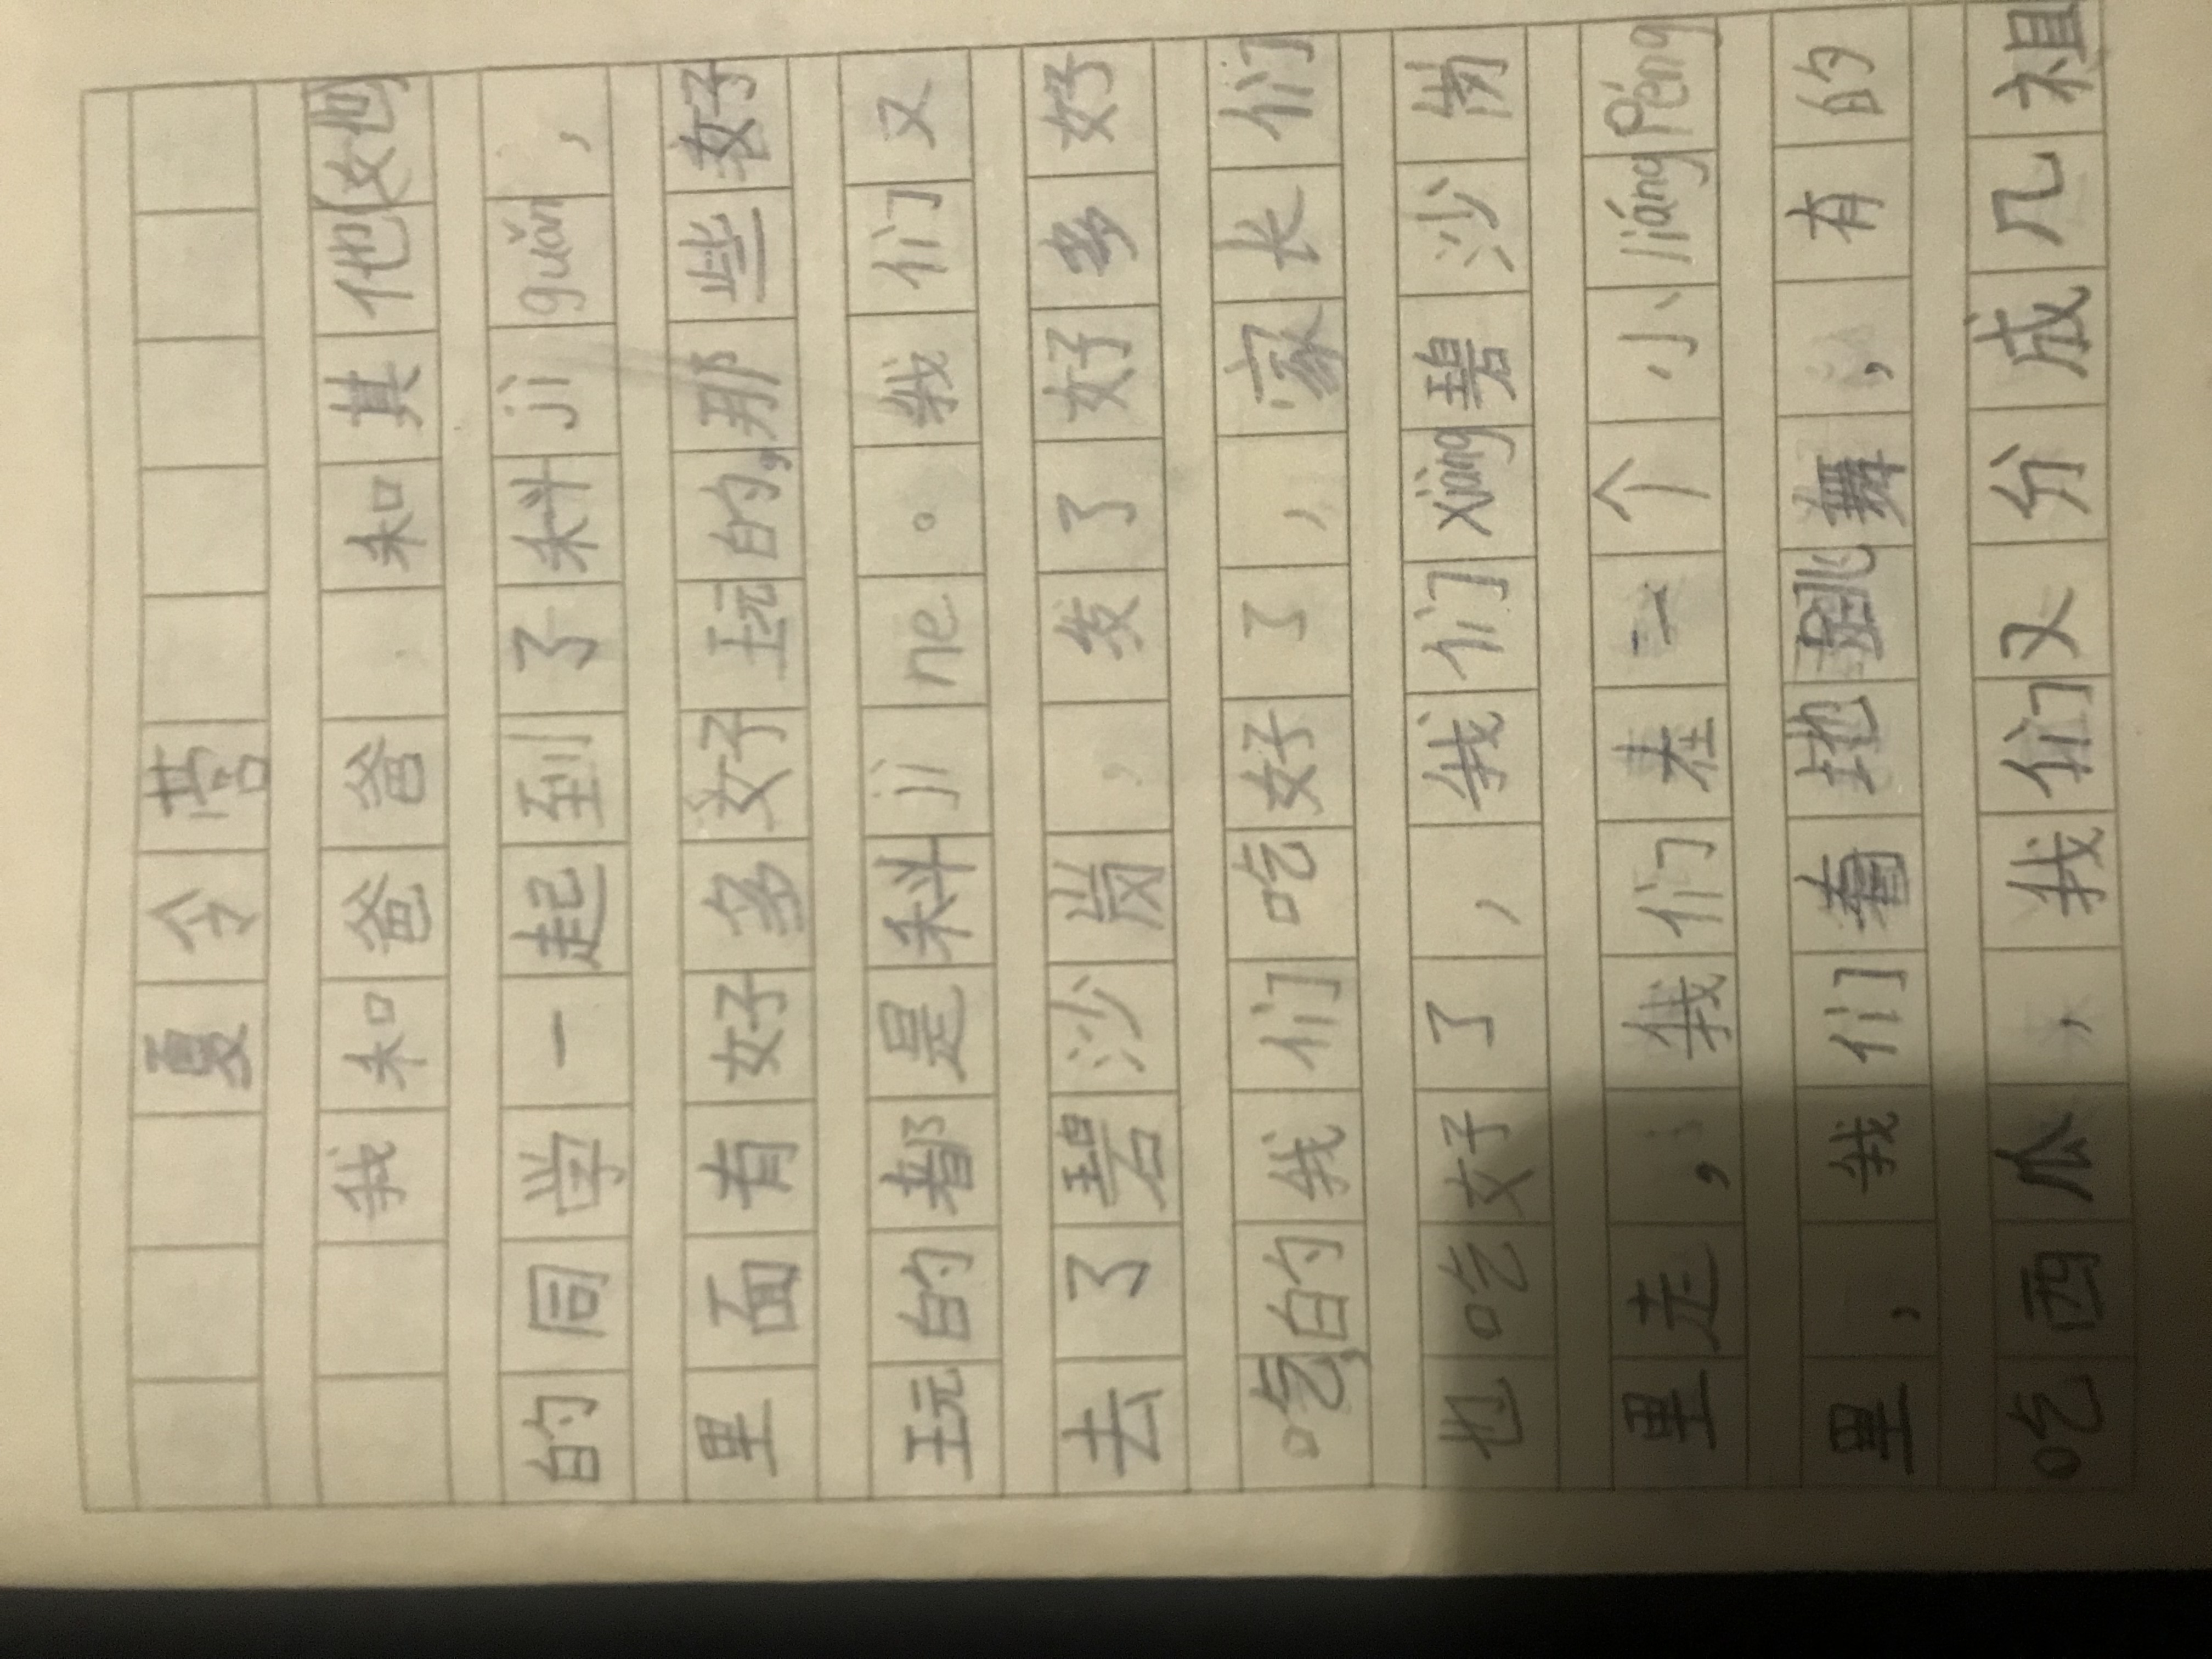 夏令营
我和爸爸、和其他(她)
的同学一起到了科jì guǎn，
里面有好多好玩的，那些好
玩的都是科jì ne。我们又
去了碧沙岗，发了好多好
吃的，我们吃好了，家长们
也吃好了，我们xiàng碧沙岗
里走，我们在一个小liáng péng
里，我们地跳舞，有的
吃西瓜，我们又分成几祖